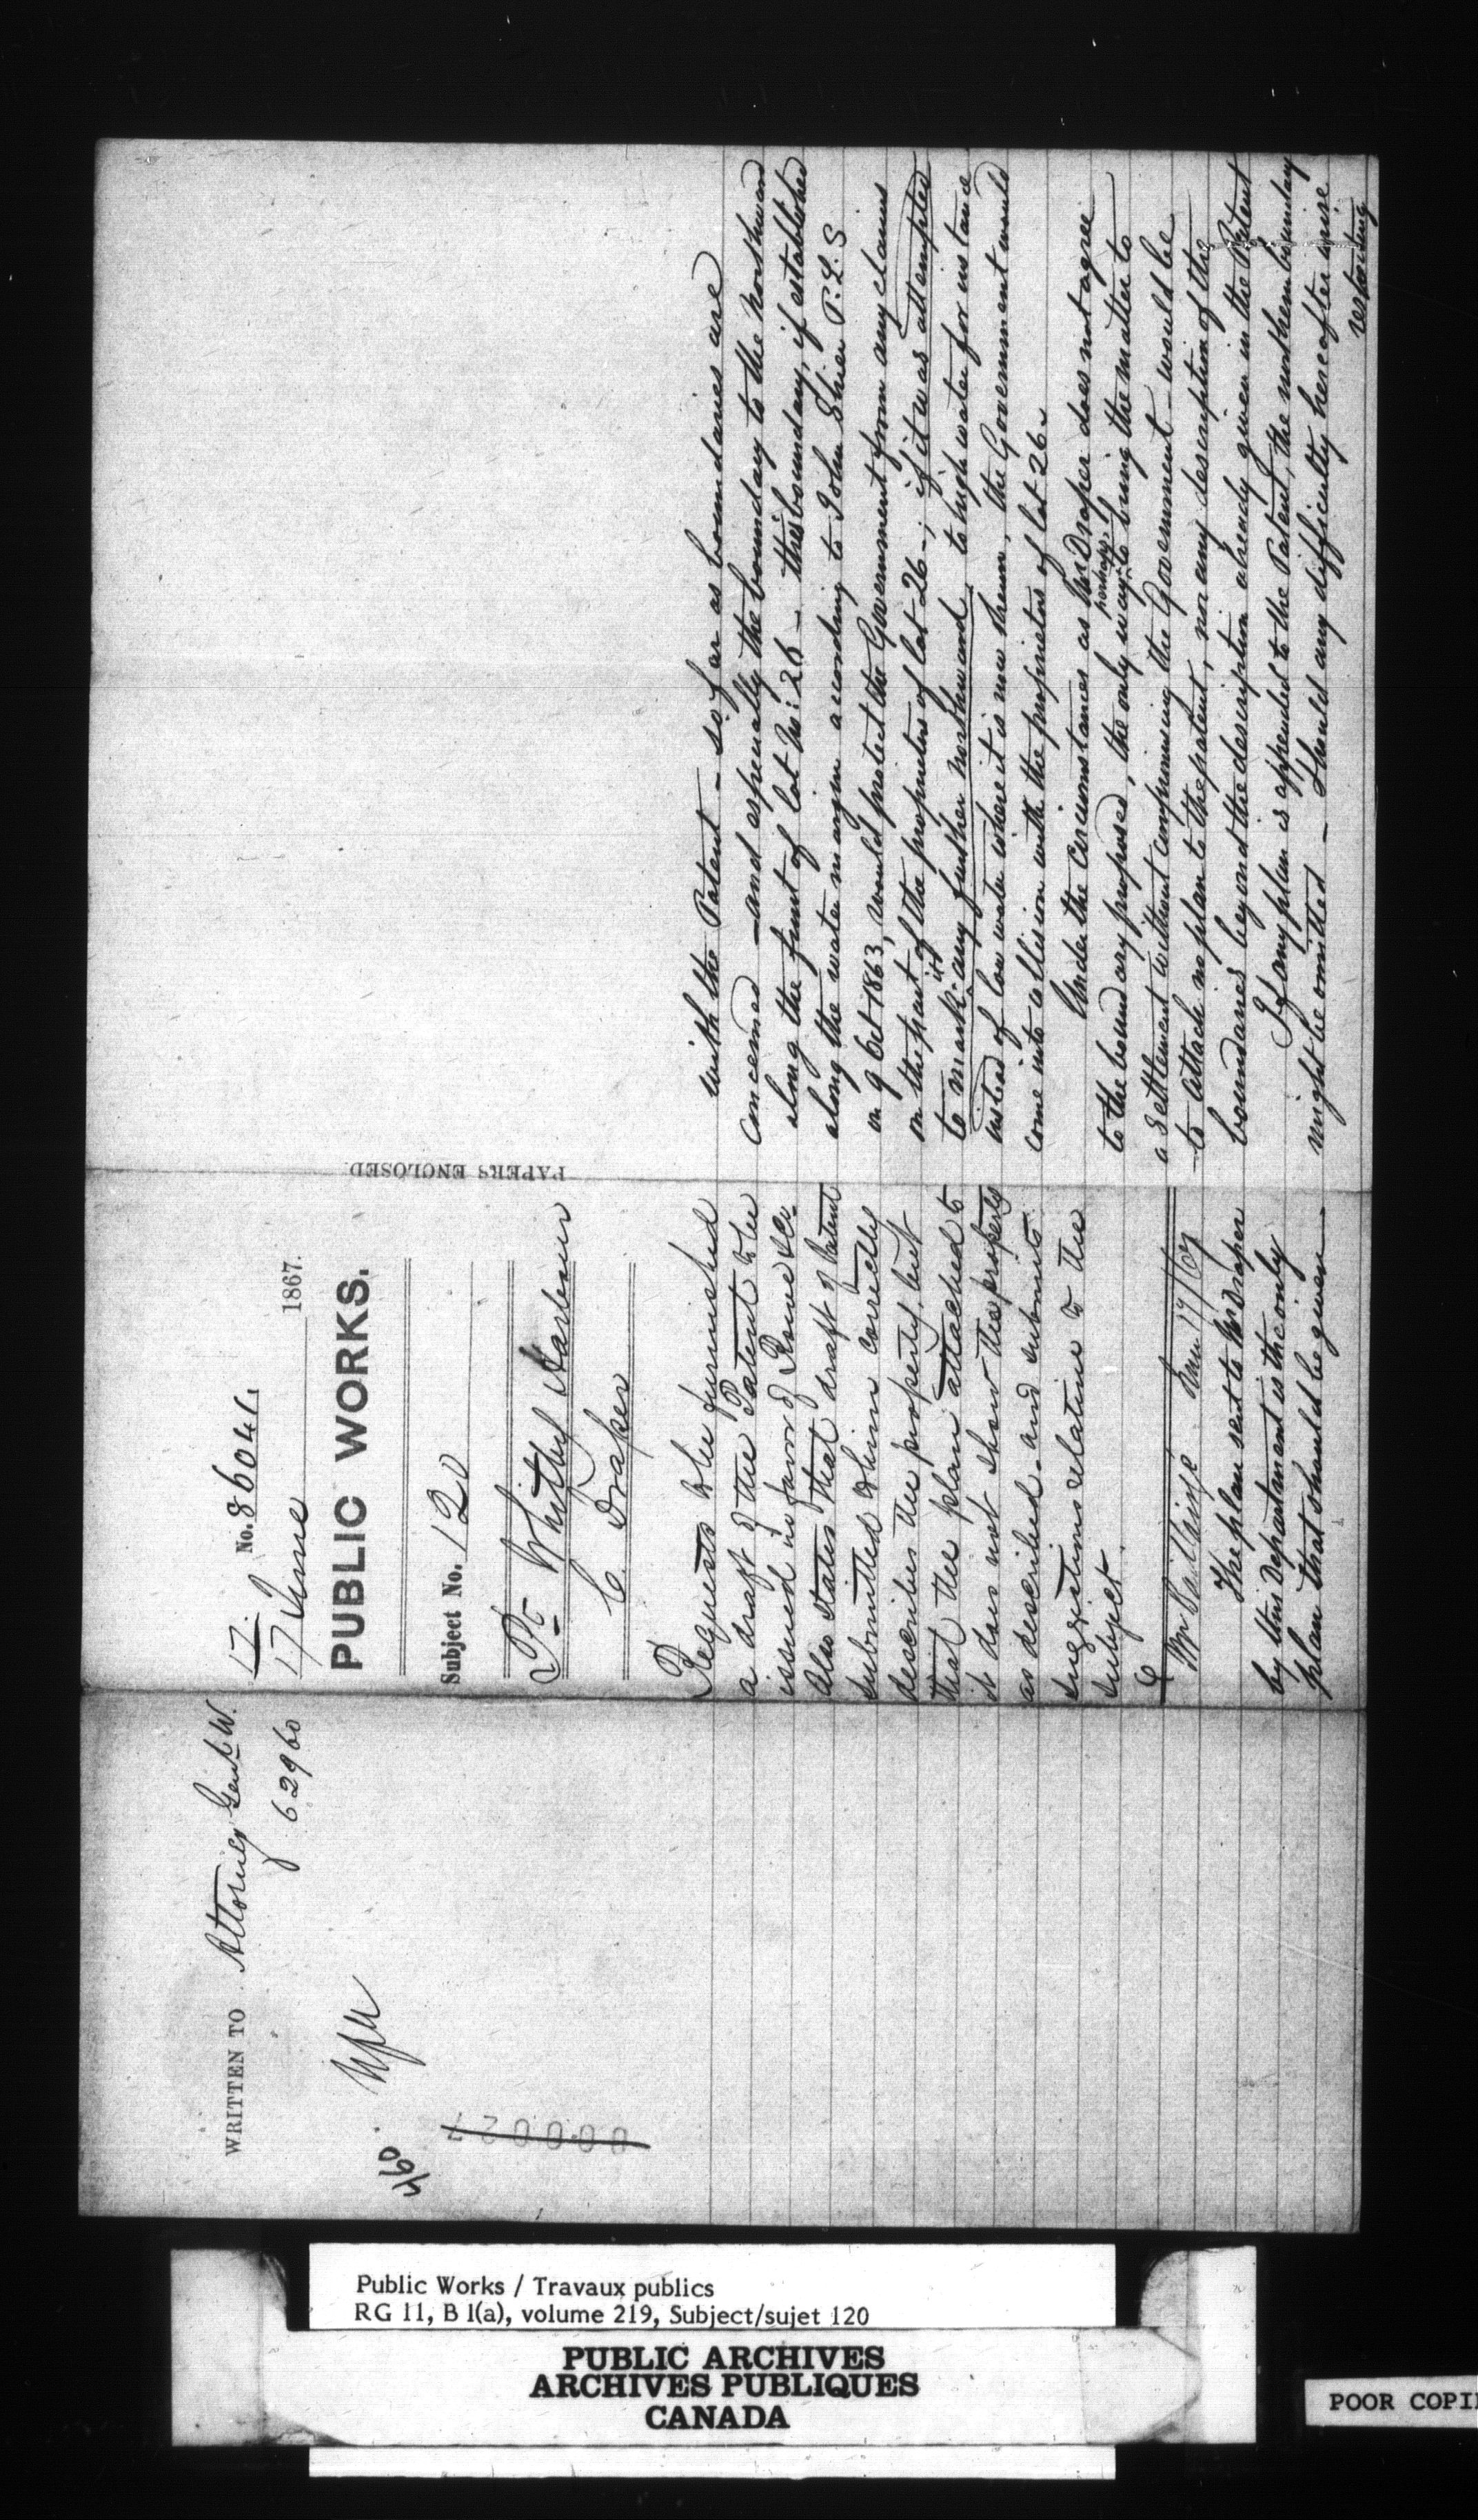 WRITTEN TO Attorney Genl W.
62960
460
17 No. 86041
17 June 1867.
PUBLIC WORKS.
Subject No. 120
Pt Whitby Harbour
C. Draper
Requests to be furnished
a draft of the Patent to be
issued in favor of Rowe &c.
Also states that draft of Patent
submitted to him correctly
describes the property, but
that the plan attached to
it does not show the property
as described. and submits
suggestions relative to the
subject.
The plan sent to Mr Draper
by this Department is the only
plan that should be given
PAPERS ENCLOSED
with the Patent - so far as boundaries are
concerned - and especially the boundary to the Northward
along the front of lot No: 26 - this boundary, if established
along the water margin according to John Shier P.L.S
on 9 Oct 1863, would protect the Government from any claims
on the part of the proprietors of lot 26 -; if it was attempted
to mark it any further Northward, to high water for instance
instead of low water where it is now shewn, the Government would
come into collision with the proprietors of lot 26.
Under the circumstances as Mr Draper does not agree
to the boundary proposed, the only way perhaps to bring the matter to
a settlement without compromising the Government - would be
- to attach no plan to the patent, nor any description of the
boundaries beyond the description already given in the Patent
If any plan is appended to the Patent, the northern boundary
might be omitted - Should any difficulty hereafter arise
Public Works / Travaux publics
RG 11, B 1(a), volume 219, Subject/sujet 120
PUBLIC ARCHIVES
ARCHIVES PUBLIQUES
CANADA
POOR COPI